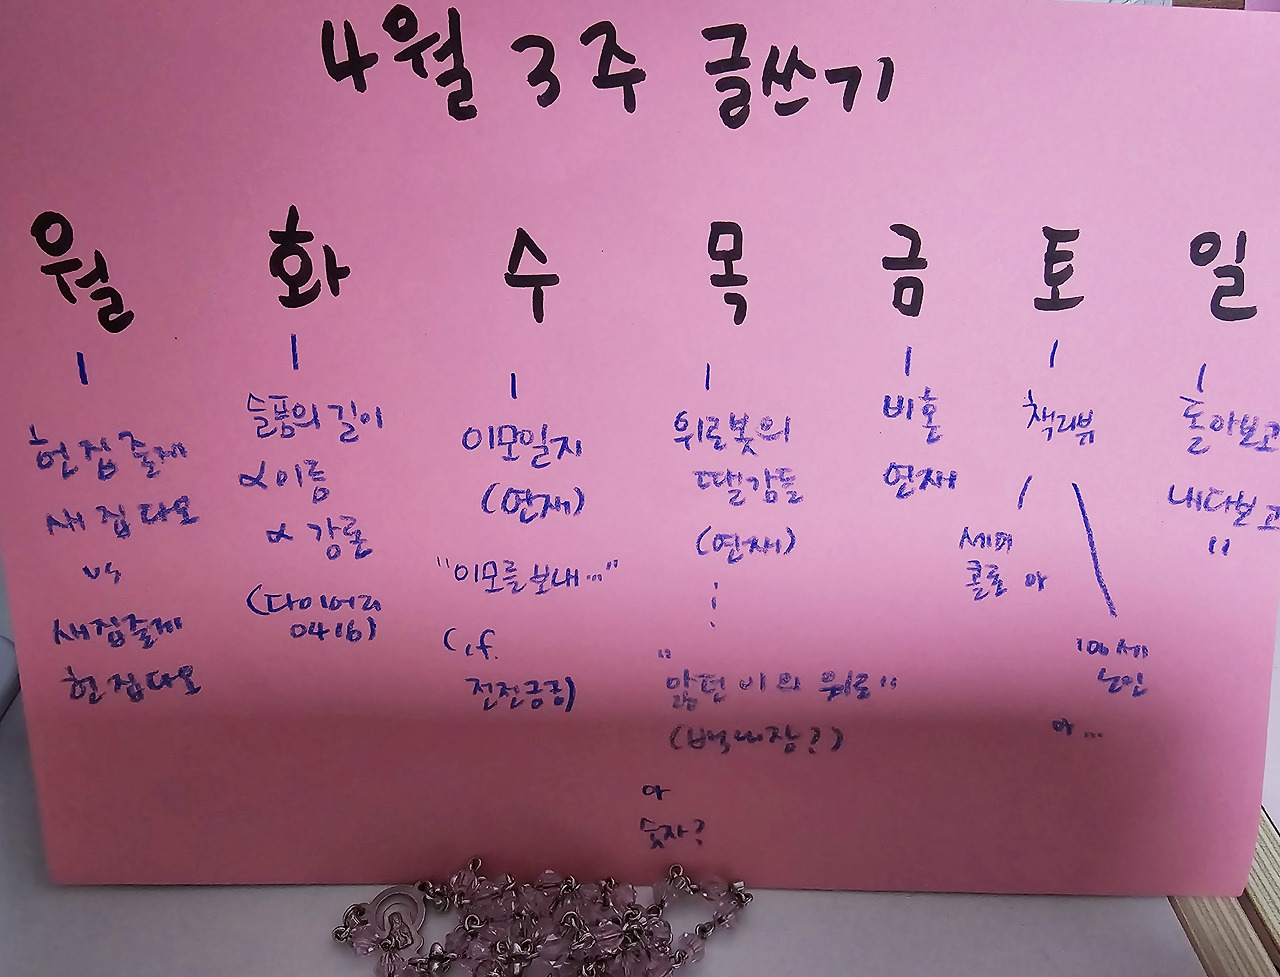 4월 3주 글쓰기
월 화 수 목 금 토 일
헌집줄게
새집다오
vs
새집줄게
헌집다오
슬픔의 길이
α 이름
α 강론
(다이어리
0416)
이모일지
(연재)
"이모를 보내..."
(if.
전전긍긍)
위로봇의
땔감들
(연재)
"
앓던 이의 위로"
(백내장?)
아
숫자?
비혼
연재
책리뷰
세피
콜로 아
100세
노인
아...
돌아보고
내다보고
"